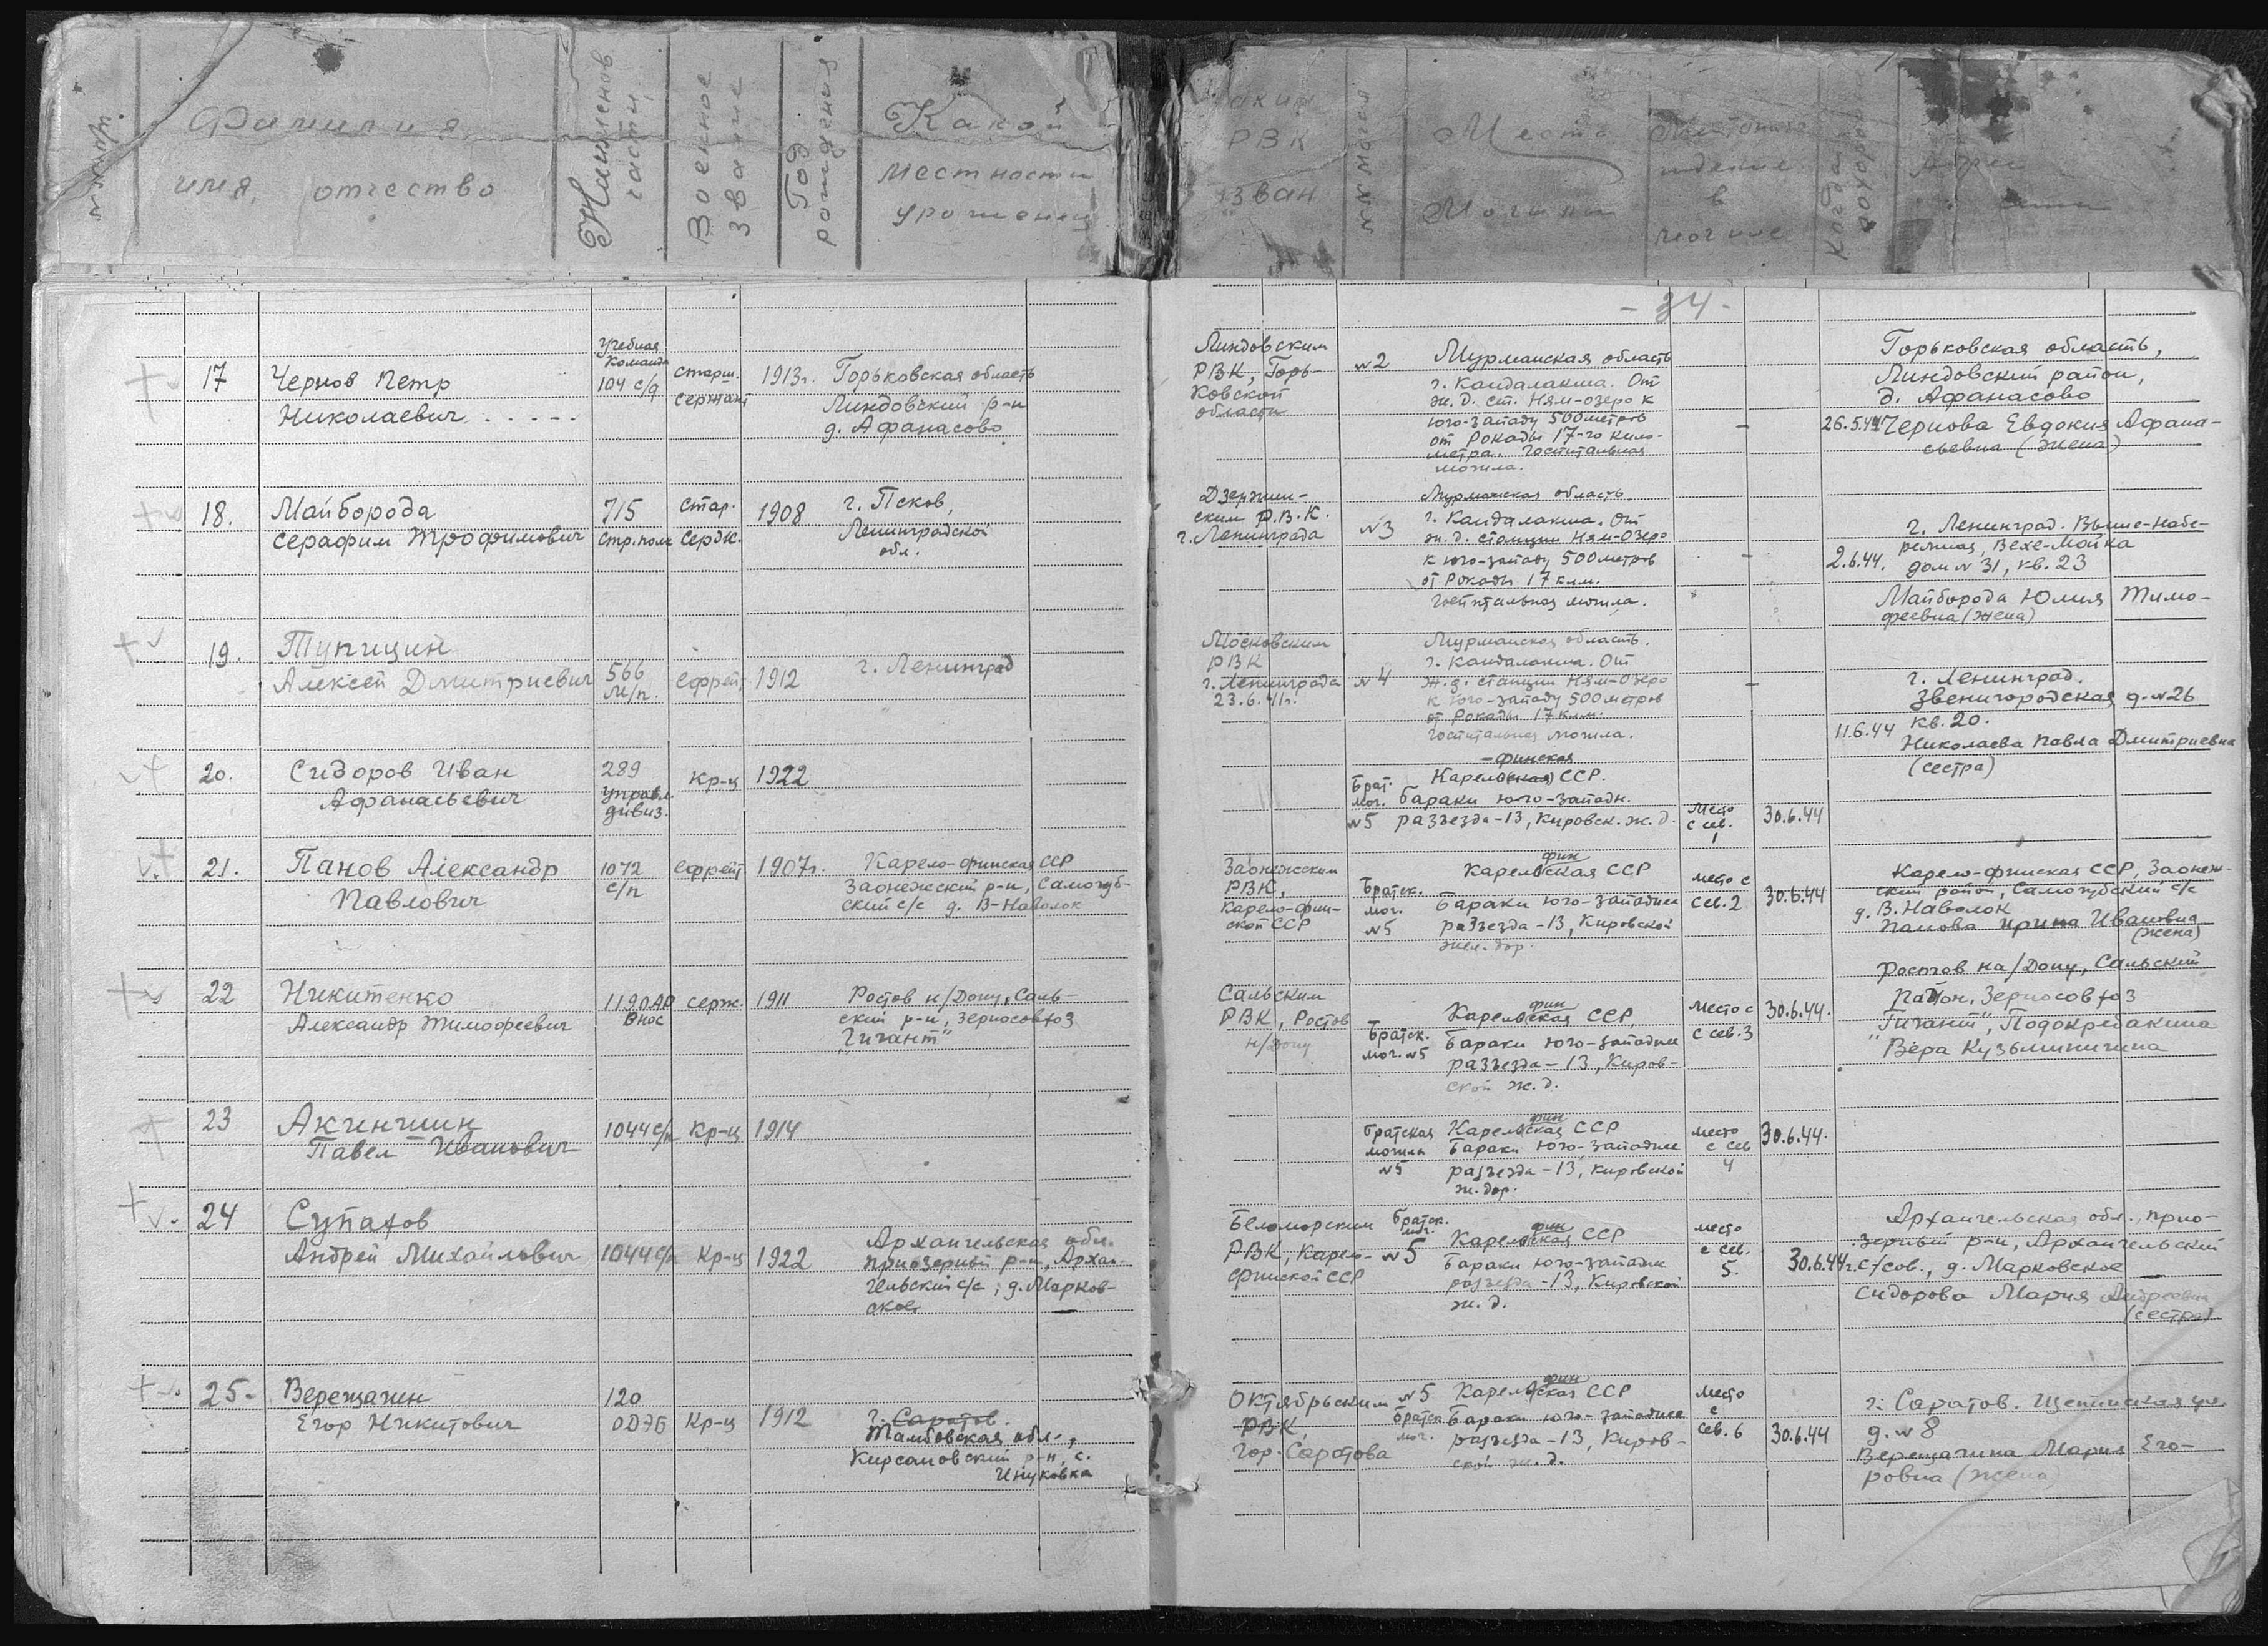 №№ п/п.
Фамилия,
имя, отчество
Наименов
части
Военное
звание
Год
рождения
Какой
местности
уроженец
РВК
№№ могил
Место
Могилы
в
могиле
Когда
похоронен
- 34 -
17
Чернов Петр
Николаевич
Учебная
Команда
104 с/д
старш.
сержант
1913г.
Горьковская область
Линдовский р-н
д. Афанасово
Линдовским
РВК, Горь-
ковской
области
№2
Мурманская область
г. Кандалакша. От
ж.д. ст. Ням-озеро к
юго-западу 500 метров
от Рокады 17-го кило-
метра. Госпитальная
могила.
-
26.5.44
Горьковская область,
Линдовский район,
д. Афанасово
Чернова Евдокия Афана-
сьевна (жена)
18.
Майборода
Серафим Трофимович
715
стр. полк
стар.
серж.
1908
г. Псков,
Ленинградской
обл.
Дзержин-
ским Р.В.К.
г. Ленинграда
№3
Мурманская область.
г. Кандалакша. От
ж.д. станции Ням-Озеро
к юго-западу 500 метров
от Рокады 17 клм.
Госпитальная могила.
-
2.6.44.
г. Ленинград.
дом №31, кв. 23
Майборода Юлия Тимо-
феевна (жена)
19.
Тупицин
Алексей Дмитриевич
566
м/п.
Ефрейт.
1912
г. Ленинград
Московским
РВК
г. Ленинграда
23.6.41г.
№4
Мурманская область.
г. Кандалакша. От
ж.д. станции Ням-Озеро
к юго-западу 500 метров
от Рокады 17 клм.
Госпитальная могила.
-
11.6.44
г. Ленинград.
Звенигородская д. №26
кв. 20.
Николаева Павла Дмитриевна
(сестра)
20.
Сидоров Иван
Афанасьевич
289
управл.
дивиз.
Кр-ц
1922
Брат.
мог.
№5
-финская
Карельская ССР.
Бараки юго-западн.
разъезда-13, Кировск. ж.д.
Место
с сев.
1
30.6.44
21.
Панов Александр
Павлович
1072
с/п
Ефрейт
1907г.
Карело-финская ССР
Заонежский р-н, Самогуб-
ский с/с д. В-Наволок
Заонежским
РВК,
Карело-фин-
ской ССР
Братск.
мог.
№5
фин
Карельская ССР
Бараки юго-западнее
разъезда-13, Кировской
жел. дор.
место с
сев. 2
30.6.44
Карело-финская ССР, Заонеж-
ский район, Самогубский с/с
д. В. Наволок
Панова Ирина Ивановна
(жена)
22
Никитенко
Александр Тимофеевич
ВНОС
серж.
1911
Ростов н/Дону, Саль-
ский р-н, Зерносовхоз
"Гигант"
Сальским
РВК, Ростов
н/Дону
Братск.
мог. №5
фин
Карельская ССР
Бараки юго-западнее
разъезда-13, Киров-
ской ж.д.
Место с
с сев. 3
30.6.44.
Ростов на/Дону, Сальский
район, Зерносовхоз
"Гигант",
Вера Кузьминична
23
Акиншин
Павел Иванович
1044 с/п
Кр-ц
1914
Братская
могила
№5
фин
Карельская ССР
Бараки юго-западнее
разъезда-13, Кировской
ж. дор.
место
с сев
4
30.6.44.
24
Супахов
Андрей Михайлович
1044 с/п
Кр-ц
1922
Архангельская обл.
приозерный р-н, Архан-
гельский с/с, д. Марков-
ское
Беломорским
РВК, Карело-
финской ССР
Братск.
мог.
№5
фин
Карельская ССР
Бараки юго-западнее
разъезда-13, Кировской
ж.д.
место
с сев.
5.
30.6.44г.
Архангельская обл., прио-
зерный р-н, Архангельский
с/сов., д. Марковское
Сидорова Мария Андреевна
(сестра)
25.
Верещагин
Егор Никитович
120
Кр-ц
1912
г. Саратов.
Тамбовская обл.,
Кирсановский р-н, с.
Инуковка
Октябрьским
РВК,
гор. Саратова
№5
братск
мог.
фин
Карельская ССР
Бараки юго-западнее
разъезда-13, Киров-
ской ж.д.
место
с
сев. 6
30.6.44
г. Саратов.
д. №8
Верещагина Мария Его-
ровна (жена)